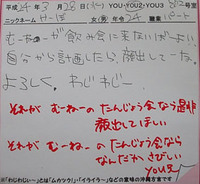 平成24年3月28日(水) YOU・YOU2・YOU3 312号室
ニックネーム サーほ 女(男) 年令24 職業 パート
むーねーが飲み会に来ないばーよぃ
自分から計画したら、顔出してってな。
よろしく。わじわじ
それが むーねーの たんじょう会なら是非
顔出してほしい
それが むーねーの たんじょう会なら
なんだかさびしい
YOUより
※「わじわじぃ〜」とは「ムカつク!」・「イライラ〜」などの意味の沖縄方言です